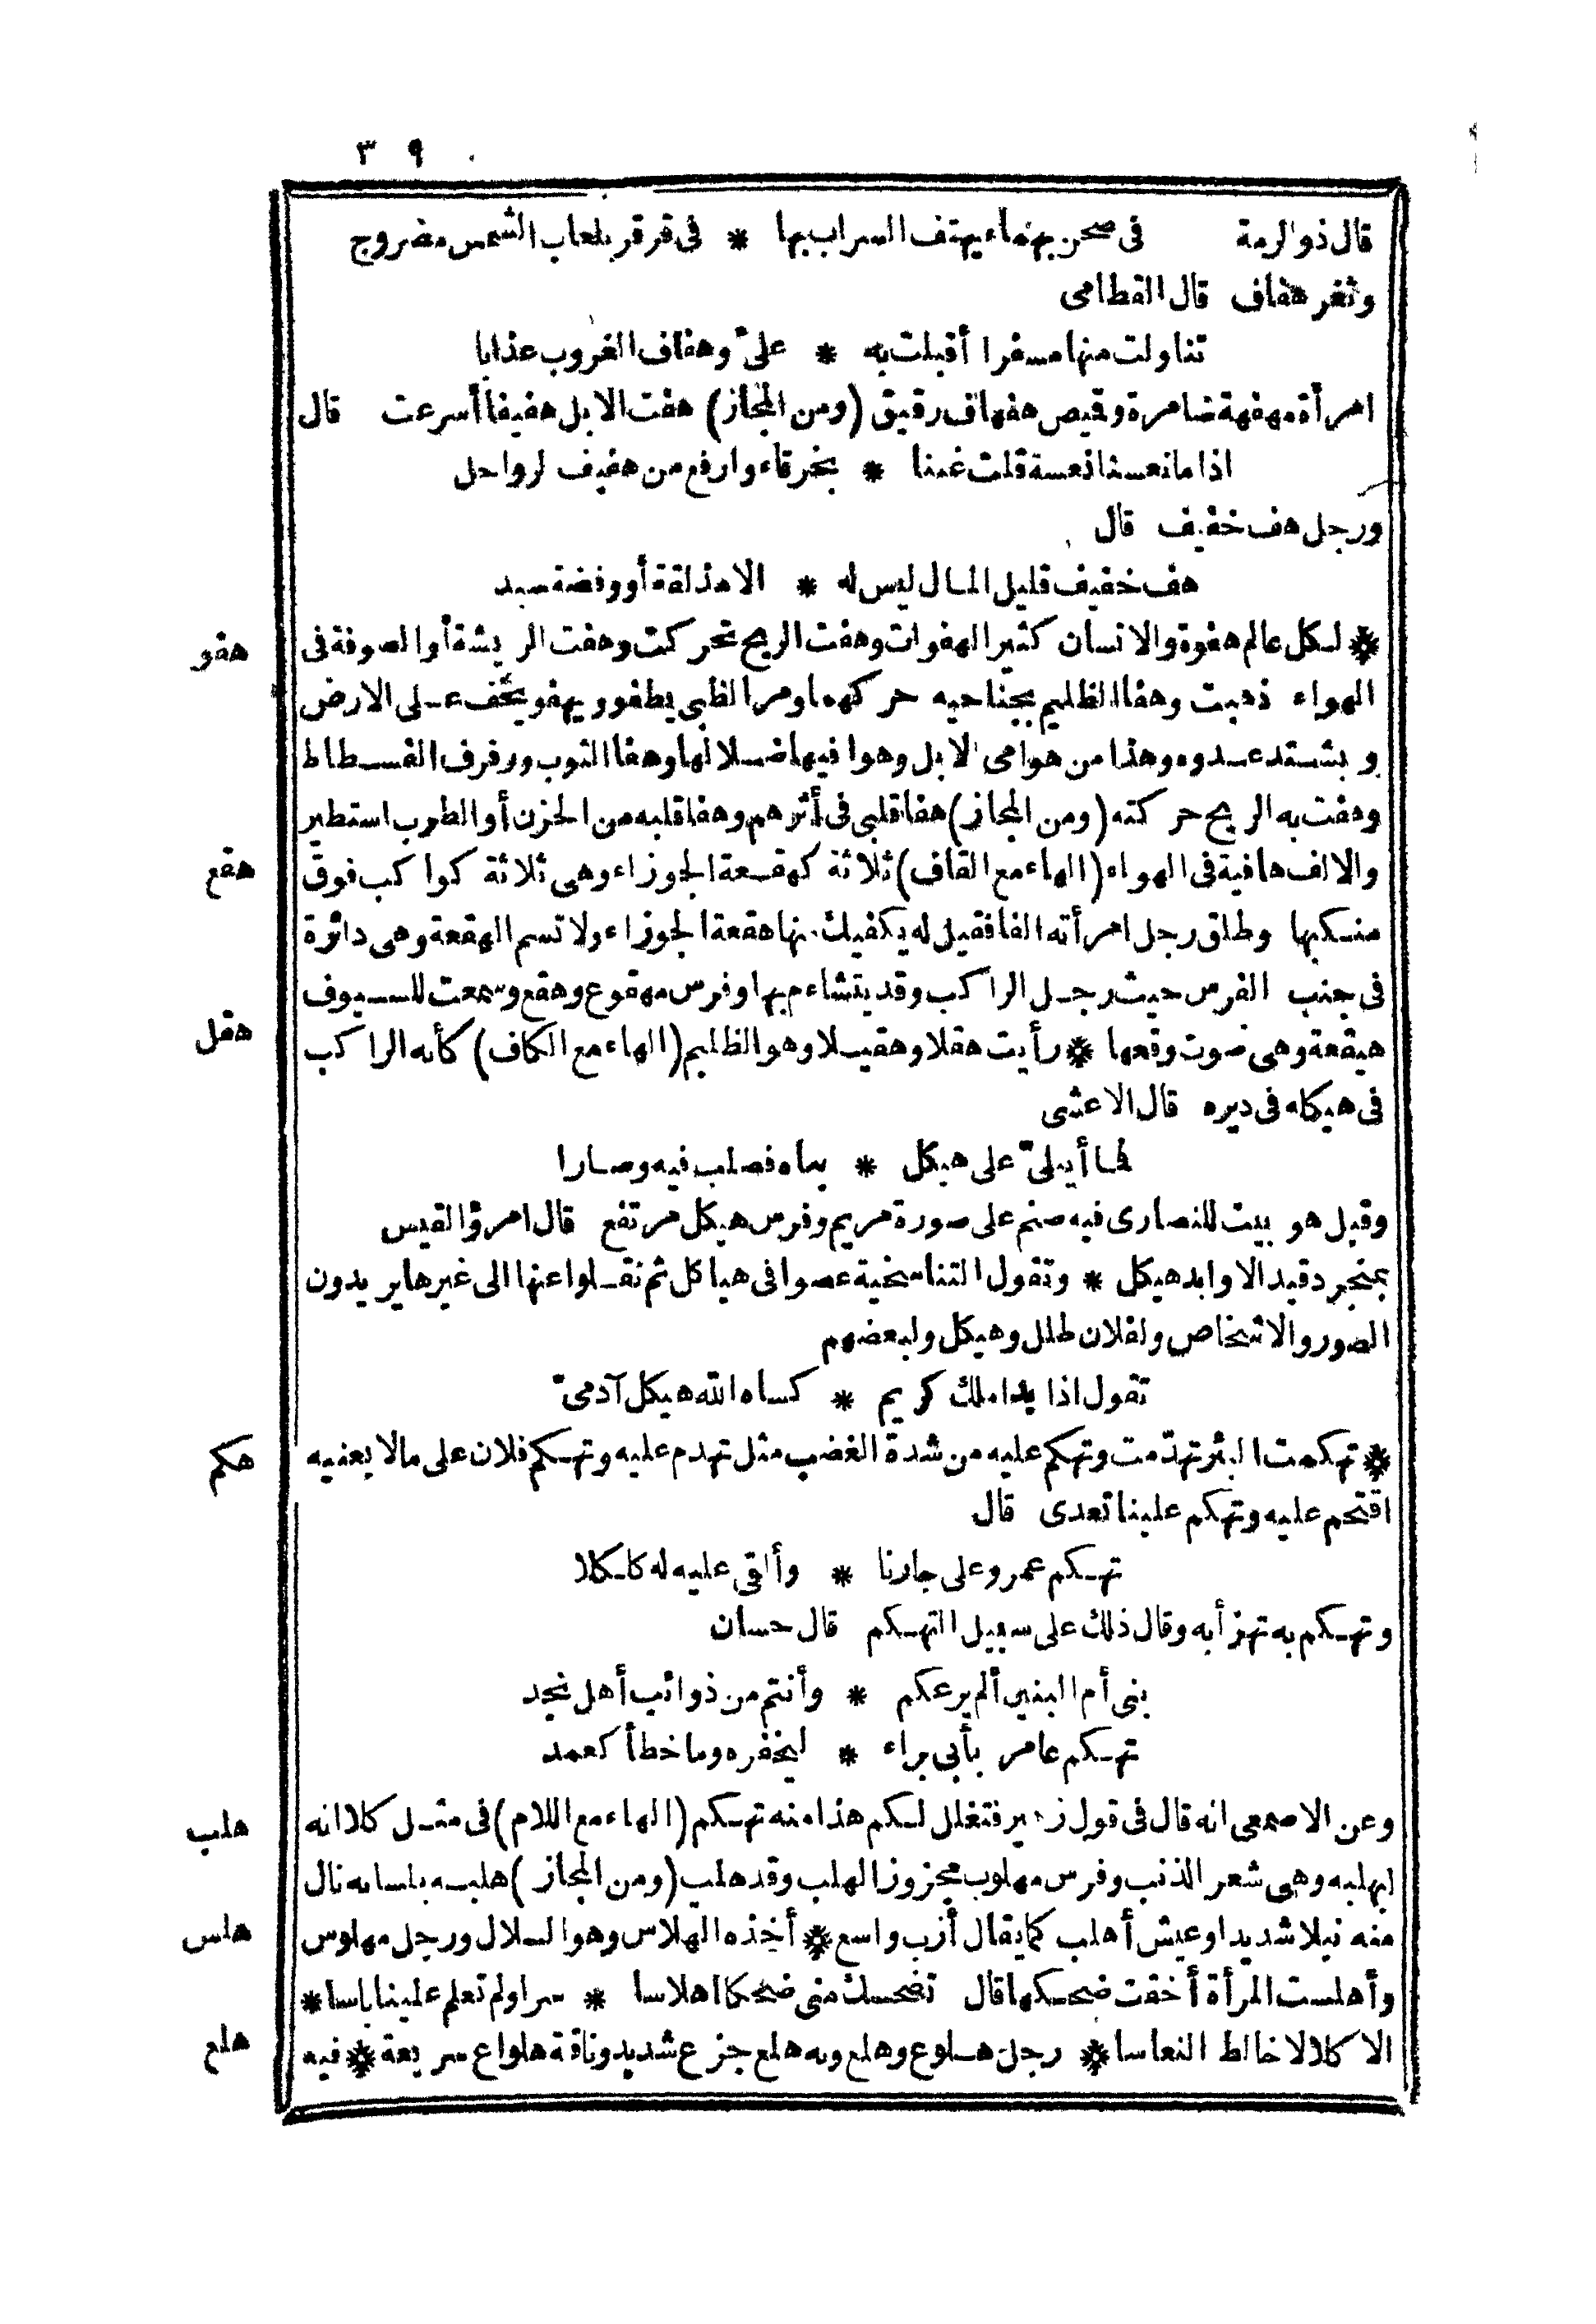 ٣٩٠
قال ذوالرمة في صحن يهماء يهتف السراب بها * في قرقر بلعاب الشمس مضروج
وثغر هفاف قال القطامى
تناولت منها مسفرا أقبلت به * علىّ وهفاف الغروب عذابا
امرأة مهفهفة ضامرة وقميص هفهاف رقيق (ومن المجاز) هفت الابل هفيفا أسرعت قال
اذا ما نعسنا نعسة قلت غننا * بخرقاء وارفع من هفيف الرواحل
ورجل هف خفيف قال
هف خفيف قليل المال ليس له * الا مذلقة أو وفضة سبد
هفو
* لكل عالم هفوة والانسان كثير الهفوات وهفت الريح تحركت وهفت الريشة أو الصوفة في
الهواء ذهبت وهفا الظليم بجناحيه حركهما ومر الظبي يطفو ويهفو يخف على الارض
ويشتد عدوه وهذا من هوامى الابل وهوافيها ضلالها وهفا الثوب ورفرف الفسطاط
وهفت به الريح حركته (ومن المجاز) هفا قلبي في أثرهم وهفا قلبه من الحزن أو الطرب استطير
هقع
والالف هافية في الهواء (الهاء مع القاف) ثلاثة كهقعة الجوزاء وهى ثلاثة كواكب فوق
منكبها وطلق رجل امرأته الفا فقيل له يكفيك منها هقعة الجوزاء ولا تسم الهقعة وهى دائرة
في جنب الفرس حيث رجل الراكب وقد يتشاءم بها وفرس مهقوع وهقع وسمعت للسيوف
هقل
هيقعة وهى صوت وقعها * رأيت هقلا وهقيلا وهو الظليم (الهاء مع الكاف) كأنه الراكب
في هيكله في ديره قال الاعشى
فما أيبلىّ على هيكل * بناه فصلب فيه وصارا
وقيل هو بيت للنصارى فيه صنم على صورة مريم وفرس هيكل مرتفع قال امرؤ القيس
بمنجرد قيد الاوابد هيكل * وتقول التناسخية عصوا في هياكل ثم نقلوا عنها الى غيرها يريدون
الصور والاشخاص ولفلان طلل وهيكل ولبعضهم
تقول اذا بدا ملك كريم * كساه الله هيكل آدمىّ
هكم
* تهكمت البئر تهدّمت وتهكم عليه من شدة الغضب مثل تهدم عليه وتهكم فلان على مالا يعنيه
اقتحم عليه وتهكم علينا تعدى قال
تهكم عمرو على جارنا * وألقى عليه له كلكلا
وتهكم به تهزأ به وقال ذلك على سبيل التهكم قال حسان
بنى أم البنين ألم يرعكم * وأنتم من ذوائب أهل نجد
تهكم عامر بأبى براء * ليخفره وما خطأ كعمد
هلب
وعن الاصمعى انه قال في قول زهير فتغلل لكم هذا منه تهكم (الهاء مع اللام) في مثل كلا انه
لبهلبه وهى شعر الذنب وفرس مهلوب مجزوز الهلب وقد هلب (ومن المجاز) هلبه بلسانه نال
هلس
منه نيلا شديدا وعيش أهلب كما يقال أزب واسع * أخذه الهلاس وهو السلال ورجل مهلوس
وأهلست المرأة أخفت ضحكها قال تضحك منى ضحكا اهلاسا * سرا ولم تعلم علينا باسا *
هلع
الا كلالا خالط النعاسا * رجل هلوع وهلع وبه هلع جزع شديد وناقة هلواع سريعة * فيه